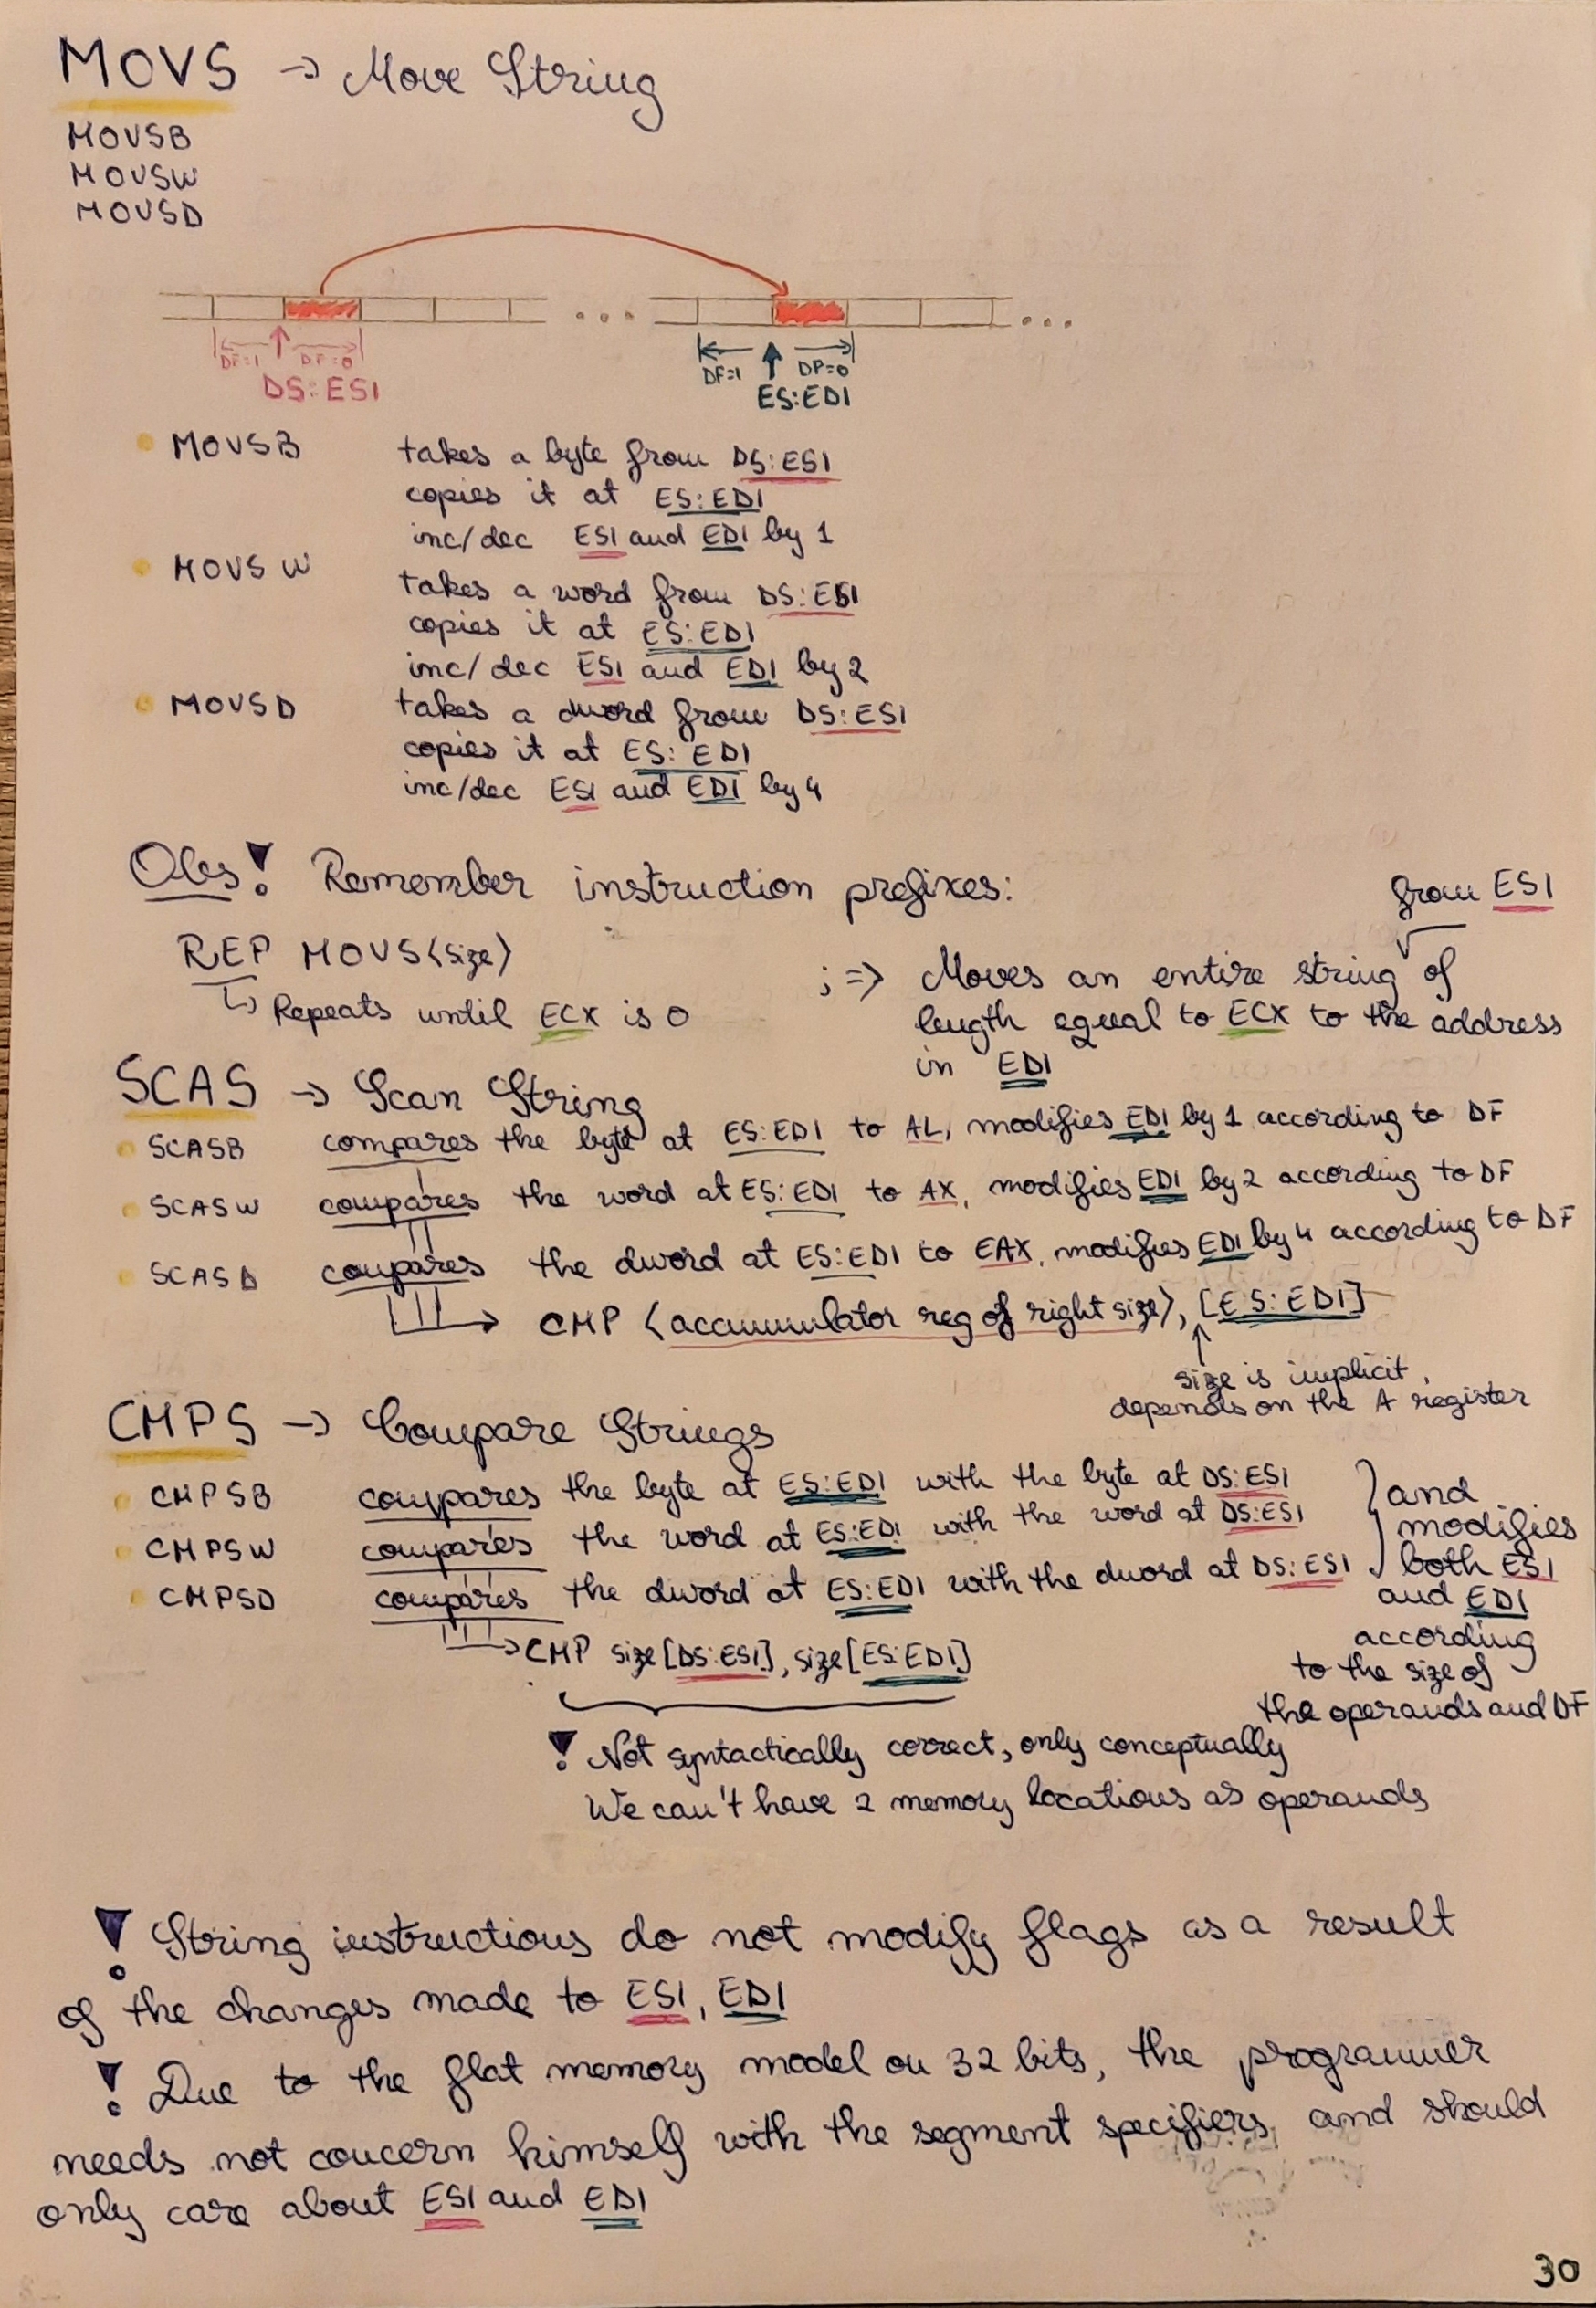 MOVS → Move String
MOVSB
MOVSW
MOVSD
... ...
DF=1 DF=0
DS:ESI
DF=1 DF=0
ES:EDI
• MOVSB takes a byte from DS:ESI
copies it at ES:EDI
inc/dec ESI and EDI by 1
• MOVSW takes a word from DS:ESI
copies it at ES:EDI
inc/dec ESI and EDI by 2
• MOVSD takes a dword from DS:ESI
copies it at ES:EDI
inc/dec ESI and EDI by 4
Obs! Remember instruction prefixes:
REP MOVS<size>
↳ Repeats until ECX is 0
from ESI
; => Moves an entire string √ of
length equal to ECX to the address
in EDI
SCAS → Scan String
• SCASB compares the byte at ES:EDI to AL, modifies EDI by 1 according to DF
• SCASW compares the word at ES:EDI to AX, modifies EDI by 2 according to DF
• SCASD compares the dword at ES:EDI to EAX, modifies EDI by 4 according to DF
→ CMP <accumulator reg of right size>, [ES:EDI]
↑
size is implicit,
depends on the A register
CMPS → Compare Strings
• CMPSB compares the byte at ES:EDI with the byte at DS:ESI
• CMPSW compares the word at ES:EDI with the word at DS:ESI
• CMPSD compares the dword at ES:EDI with the dword at DS:ESI
} and
modifies
both ESI
and EDI
according
to the size of
the operands and DF
→ CMP size[DS:ESI], size[ES:EDI]
! Not syntactically correct, only conceptually
We can't have 2 memory locations as operands
! String instructions do not modify flags as a result
of the changes made to ESI, EDI
! Due to the flat memory model on 32 bits, the programmer
needs not concern himself with the segment specifiers, and should
only care about ESI and EDI
30